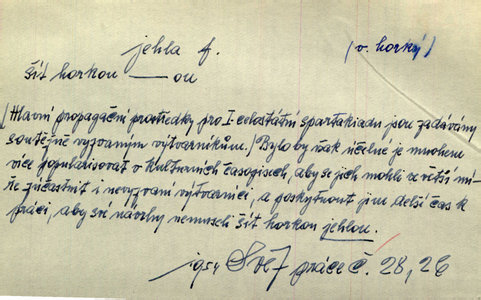 jehla f.
(v. horký)
šít horkou —ou
/Hlavní propagační prostředky pro I. celostátní spartakiadu jsou zadávány
soutěžně vyzvaným výtvarníkům./ Bylo by však účelné je mnohem
více popularisovat v kulturních časopisech, aby se jich mohli ve větší mí-
ře zúčastnit i nevyzvaní výtvarníci, a poskytnout jim delší čas k
práci, aby své návrhy nemuseli šít horkou jehlou.
Svět práce č. 28, 26